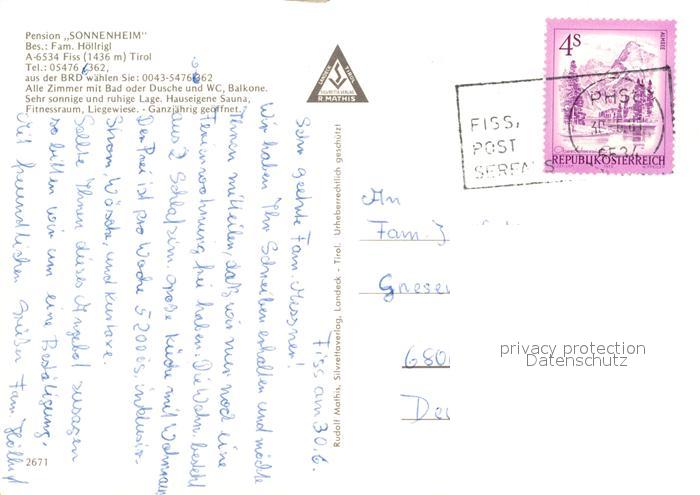 Pension „SONNENHEIM"
Bes.: Fam. Höllrigl
A-6534 Fiss (1436 m) Tirol
Tel.: 05476 6362,
aus der BRD wählen Sie: 0043-5476 6362
Alle Zimmer mit Bad oder Dusche und WC, Balkone.
Sehr sonnige und ruhige Lage. Hauseigene Sauna,
Fitnessraum, Liegewiese. - Ganzjährig geöffnet.
Fiss am 30.6.
Sehr geehrte Fam. Messner!
Wir haben Ihr Schreiben erhalten und möchte
Ihnen mitteilen, daß wir nur noch eine
Ferienwohnung frei haben. Die Wohn. besteht
aus 2 Schlafzim. große Küche mit Wohnraum
Der Preis ist pro Woche 5200 öS. inklusiv.
Strom, Wäsche, und Kurtaxe.
Sollte Ihnen dieses Angebot zusagen
so bitten wir um eine Bestätigung.
Mit freundlichen Grüßen Fam Höllrigl
2671
R. MATHIS
Rudolf Mathis, Silvrettaverlag, Landeck - Tirol. Urheberrechtlich geschützt
4S
ALMSEE
REPUBLIK ÖSTERREICH
FISS,
POST
SERFAUS
6534
An
Fam. J
Gnesen
680
De
privacy protection
Datenschutz